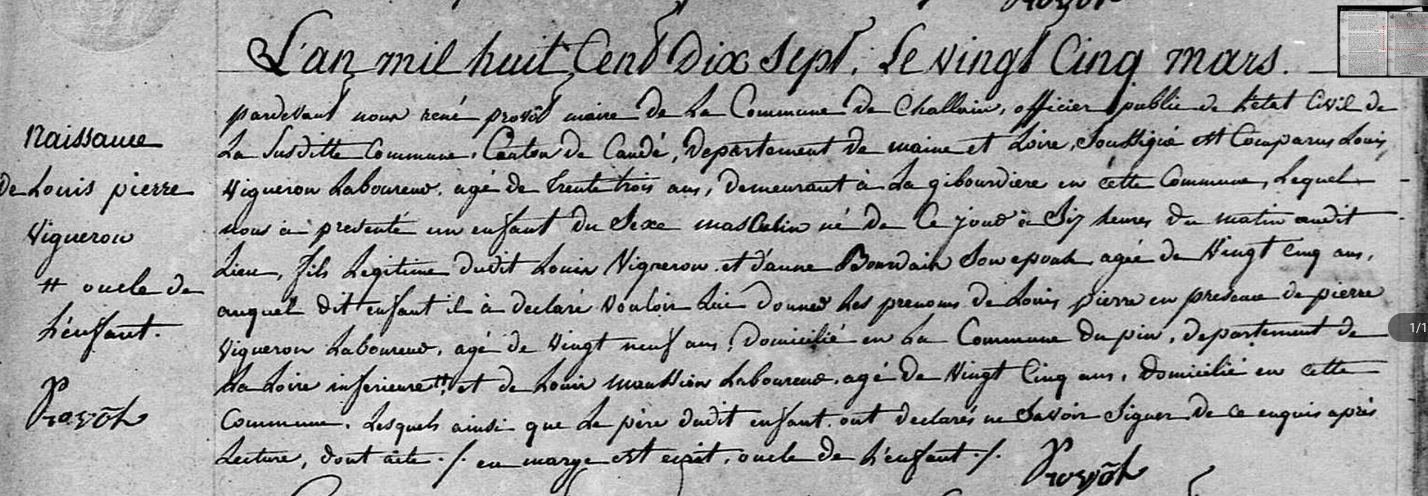 L'an mil huit Cent Dix sept, Le vingt Cinq mars.
pardevant nous rené provôt maire de La Commune de Challain, officier public de L'état Civil de
La Susditte Commune, Canton de Candé, Departement de maine et Loire, Soussigné est Comparus Louis
Vigneron Laboureur, agé de trente trois ans, Demeurant à La gibourdiere en cette Commune, Lequel
nous à présenté un enfant du Sexe masculin né de Ce jour à Six heures du matin audit
Lieu, fils Legitime dudit Louis Vigneron et d'anne Son epouse agée de Vingt Cinq ans,
auquel dit enfant il à déclaré vouloir Lui donner Les prenoms de Louis pierre en presence de pierre
Vigneron Laboureur, agé de Vingt neuf ans, Domicilié en La Commune du pin, departement de
La Loire inferieure # et de Louis Laboureur, agé de Vingt Cinq ans, Domicilié en cette
Commune, Lesquels ainsi que Le père dudit enfant ont declarés ne Savoir Signer de ce enquis après
Lecture, dont acte ./. en marge est ecrit, oncle de L'enfant ./.
Provôt
Naissance
De Louis pierre
Vigneron
# oncle de
L'enfant.
Provôt
1/1